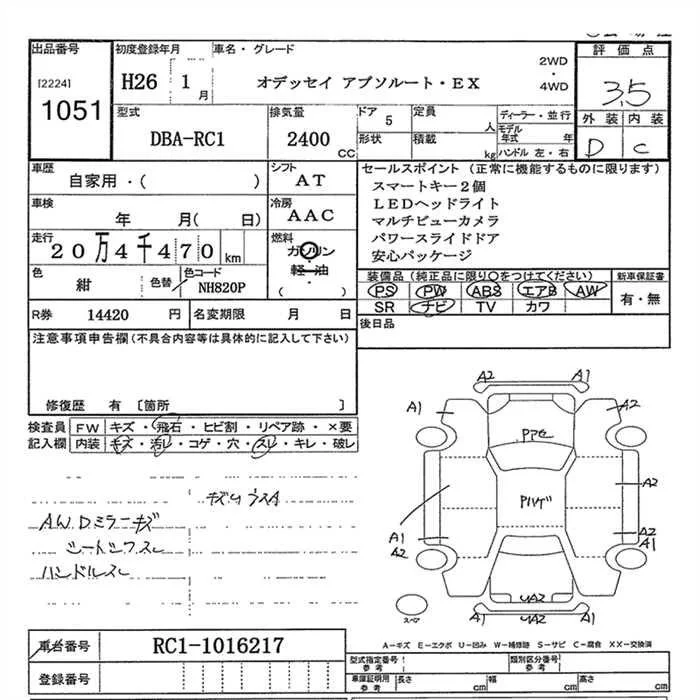 出品番号
[2224]
1051
初度登録年月
H26 1 月
車名・グレード
オデッセイ アブソルート・EX
2WD
・
4WD
評価点
3.5
外装 内装
D C
型式
DBA-RC1
排気量
2400 CC
ドア 5
形状
定員 人
積載 kg
ディーラー・並行
モデル年式 年
ハンドル 左・右
車歴
自家用・( )
シフト
AT
車検
年 月( 日)
冷房
AAC
走行
20万4千470 km
燃料
ガソリン
・
軽油
( )
色
紺
色替
色コード
NH820P
セールスポイント (正常に機能するものに限ります)
スマートキー2個
LEDヘッドライト
マルチビューカメラ
パワースライドドア
安心パッケージ
装備品(純正品に限り○をつけてください)
PS PW ABS エアB AW
SR ナビ TV カワ
新車保証書
有・無
R券 14420 円
名変期限 月 日
後日品
注意事項申告欄(不具合内容等は具体的に記入して下さい)
修復歴 有 [箇所 ]
検査員 FW キズ・飛石・ヒビ割・リペア跡・×要
記入欄 内装 キズ・汚レ・コゲ・穴・スレ・キレ・破レ
A.W.Dミラーキズ
ハンドルスレ
A2 A2
A1 A2
A2
A1
A2
A2
A1
UA2
スペア
A1 A2 A1
A-キズ E-エクボ U-凹み W-補修跡 S-サビ C-腐食 XX-交換済
車台番号 RC1-1016217
登録番号
型式指定番号 参考
類別区分番号 参考
車庫証明用 参考 長さ cm 幅 cm 高さ cm